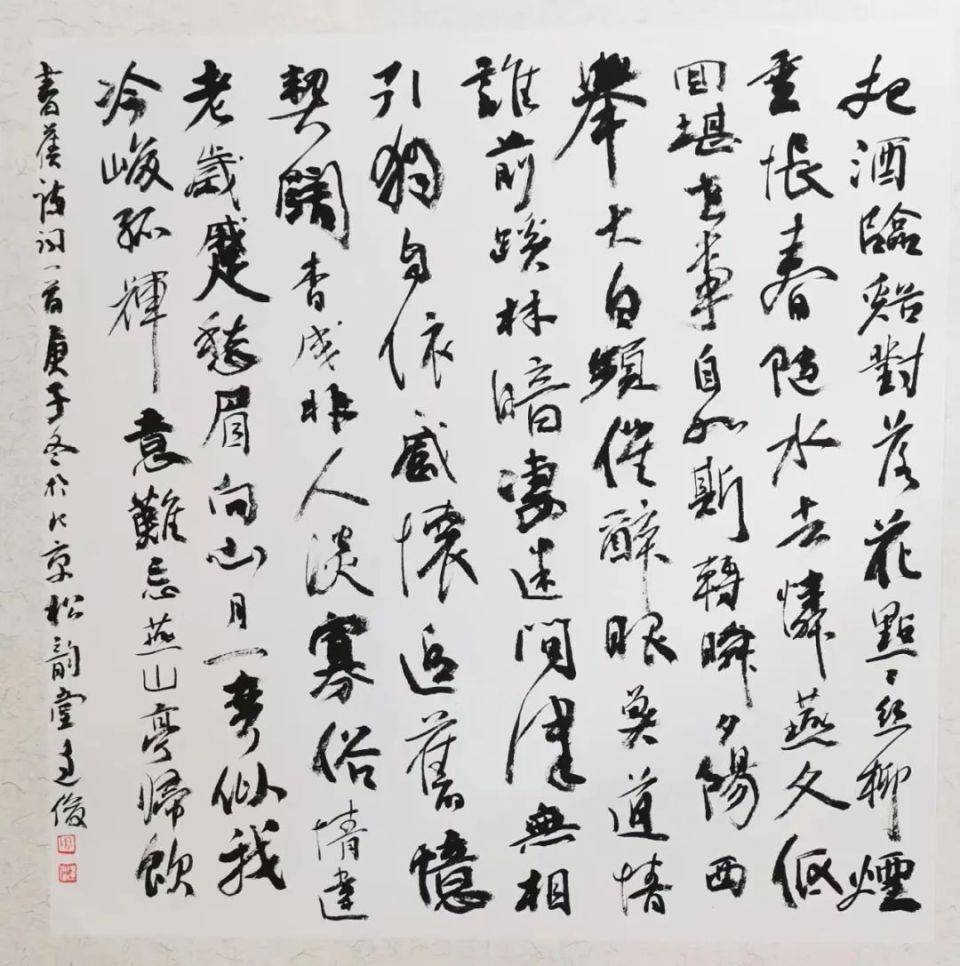 把酒臨谿對落花點點絲柳煙
重悵春隨水去憐燕久低
回堪世事自如斯轉瞬夕陽西
舉大白頻催醉眼莫道情
誰前蹊林暗淒迷問津無相
引獨自依感懷追舊憶
契闊杳成非人淡寡俗情違
老歲蹙愁眉向山月一彎似我
冷峻孤輝意難忘燕山亭歸飲
書舊詩詞一首庚子冬於北京松韵堂俊